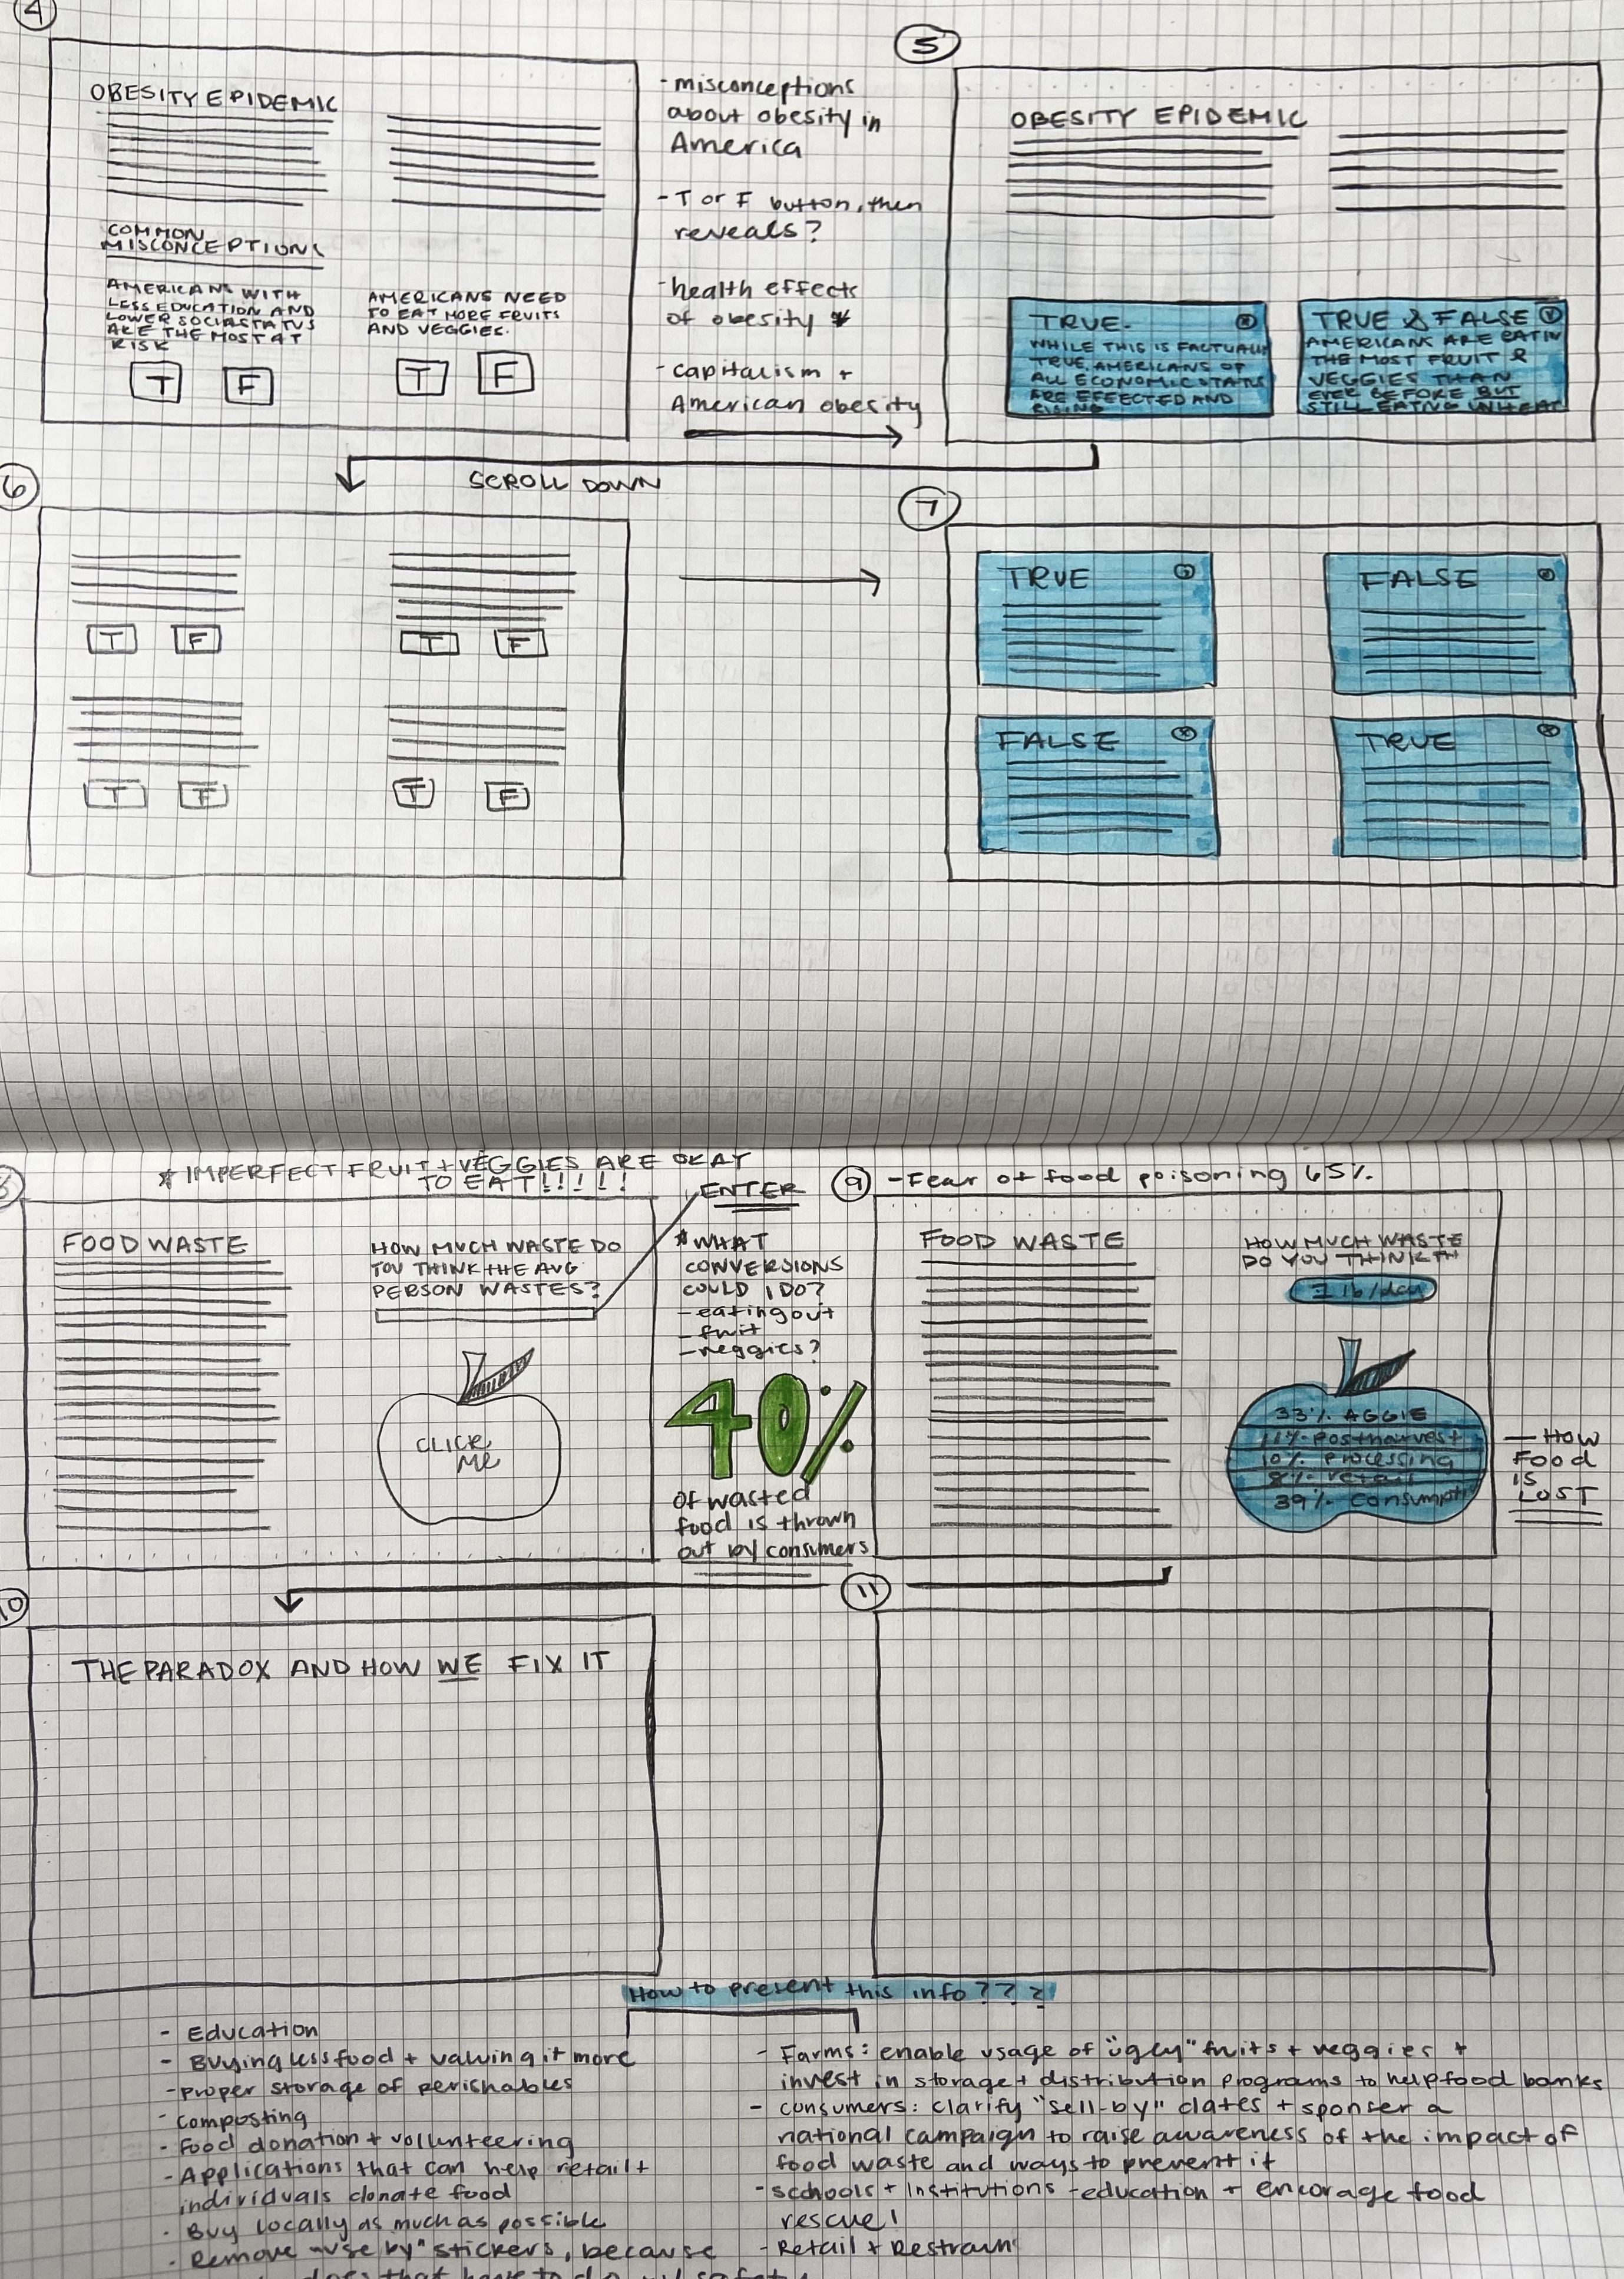 4
OBESITY EPIDEMIC
COMMON
MISCONCEPTIONS
AMERICANS WITH
LESS EDUCATION AND
LOWER SOCIA STATUS
ARE THE MOST AT
RISK
T F
AMERICANS NEED
TO EAT MORE FRUITS
AND VEGGIES.
T F
- misconceptions
about obesity in
America
- T or F button, then
reveals?
- health effects
of obesity
- capitalism +
American obesity
5
OBESITY EPIDEMIC
TRUE.
WHILE THIS IS FACTUALLY
TRUE, AMERICANS OF
ALL ECONOMIC STATUS
ARE EFFECTED AND
RISING
TRUE & FALSE
AMERICANS ARE EATIN
THE MOST FRUIT &
VEGGIES THAN
EVER BEFORE BUT
STILL EATING
SCROLL DOWN
6
T F
T F
T F
T F
7
TRUE
FALSE
FALSE
TRUE
* IMPERFECT FRUIT + VEGGIES ARE OKAY
TO EAT!!!!!
ENTER
FOOD WASTE
HOW MUCH WASTE DO
YOU THINK THE AVG
PERSON WASTES?
CLICK
ME
* WHAT
CONVERSIONS
COULD I DO?
- eating out
- fruit
- veggies?
40%
of wasted
food is thrown
out by consumers
9
- Fear of food poisoning 65%
FOOD WASTE
HOW MUCH WASTE
DO YOU THINK TH
1 lb/day
33% AGGIE
11% postharvest
10% processing
8% retail
39% consumpti
— HOW
FOOD
IS
LOST
10
THE PARADOX AND HOW WE FIX IT
11
How to present this info???
- Education
- Buying less food + valuing it more
- proper storage of perishables
- composting
- Food donation + volunteering
- Applications that can help retail +
individuals donate food
- Buy locally as much as possible
- Remove "use by" stickers, because
does that have to do
- Farms: enable usage of "ugly" fruits + veggies +
invest in storage + distribution programs to help food banks
- consumers: clarify "sell-by" dates + sponser a
national campaign to raise awareness of the impact of
food waste and ways to prevent it
- schools + Institutions - education + encorage food
rescue!
- Retail + Restraun